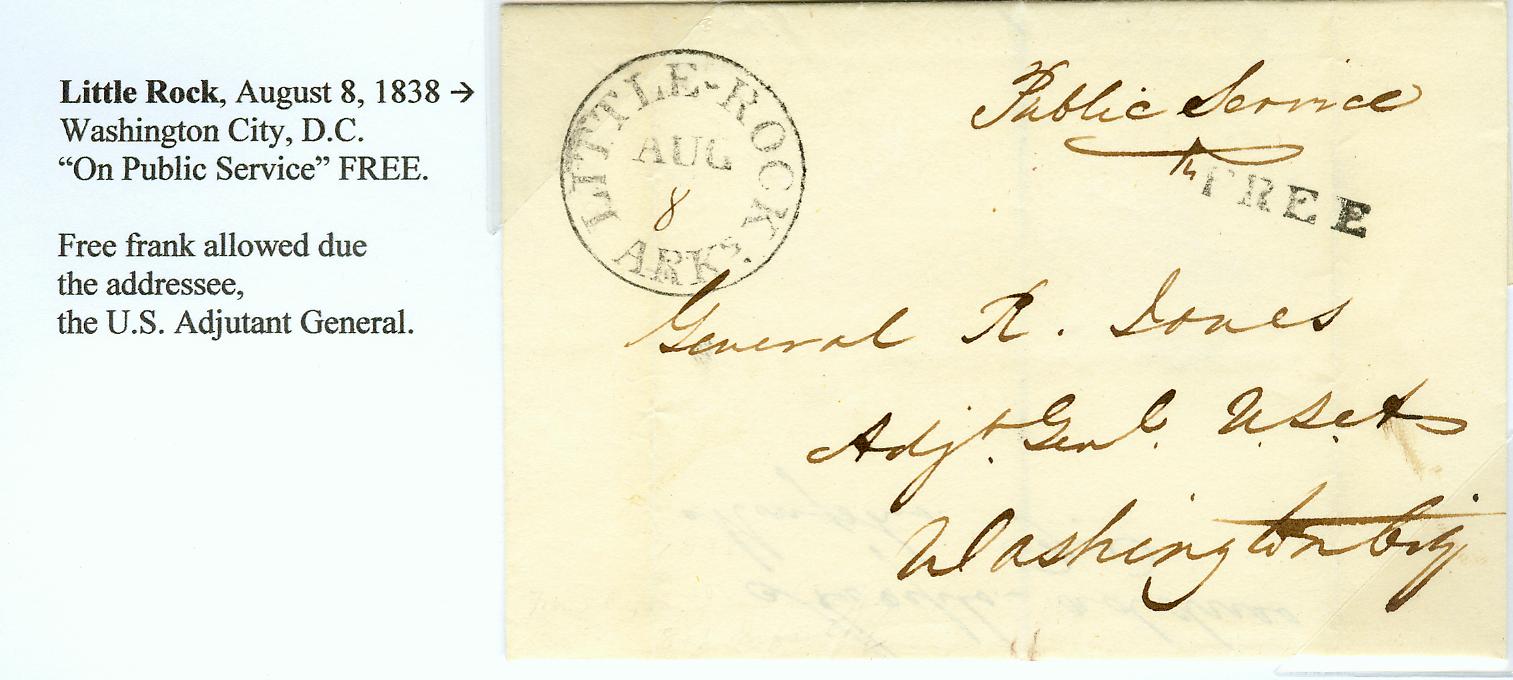 Little Rock, August 8, 1838 →
Washington City, D.C.
“On Public Service” FREE.
Free frank allowed due
the addressee,
the U.S. Adjutant General.
LITTLE-ROCK
AUG
8
ARKs.
Public Service
FREE
General R. Jones
Adjt. Genl. U.S.A
Washington City